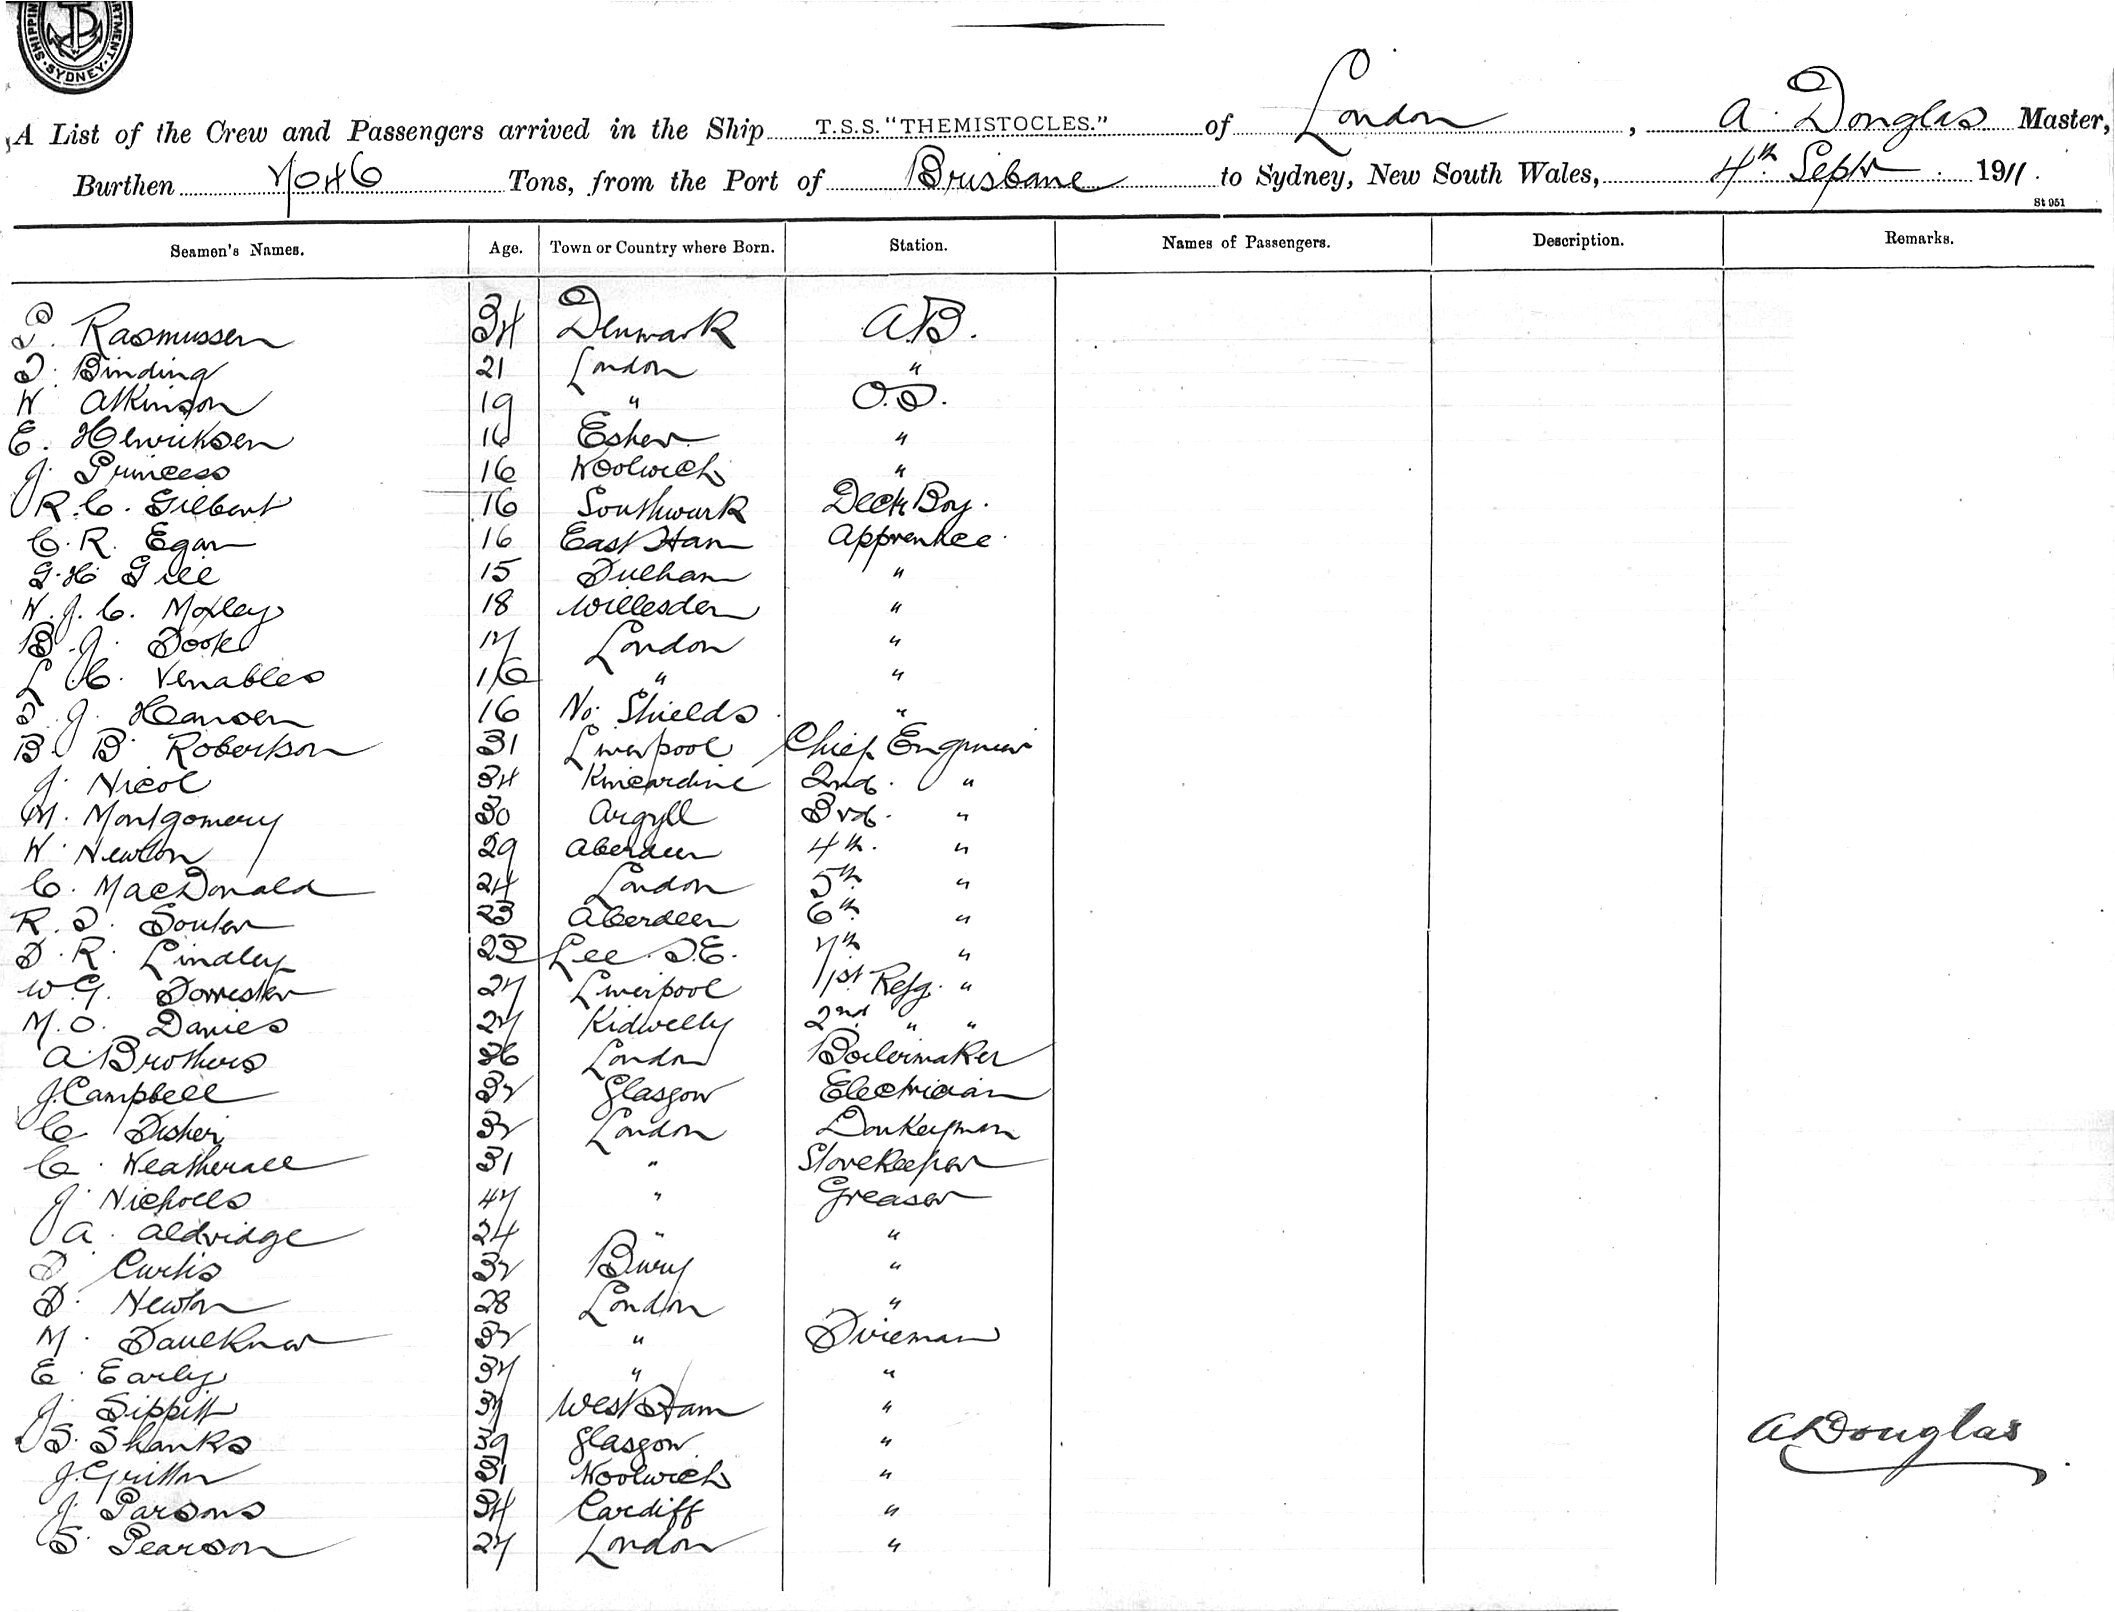 SHIPPING DEPARTMENT SYDNEY
A List of the Crew and Passengers arrived in the Ship T.S.S. "THEMISTOCLES." of London, A. Douglas Master,
Burthen 7046 Tons, from the Port of Brisbane to Sydney, New South Wales, 4th Septr 1911.
St 951
Seamen's Names. Age. Town or Country where Born. Station. Names of Passengers. Description. Remarks.
P. Rasmussen 34 Denmark A.B.
Binding 21 London "
W Atkinson 19 " O.S.
E. Henriksen 16 Esher "
J. Princess 16 Woolwich "
R. C. Gilbert 16 Southwark Deck Boy.
C. R. Egan 16 East Ham Apprentice
G. H. Gill 15 Fulham "
W. J. C. Moxley 18 Willesden "
B. J. Fook 17 London "
L. C. Venables 16 " "
J. Hansen 16 No. Shields "
B. B. Robertson 31 Liverpool Chief Engineer
J. Nicol 34 Kincardine 2nd. "
M. Montgomery 30 Argyll 3rd. "
W. Newton 29 Aberdeen 4th. "
C. MacDonald 24 London 5th "
R. S. Souter 23 Aberdeen 6th "
F. R. Lindley 23 Lee. S.E. 7th "
W. G. Forrester 27 Liverpool 1st Refg. "
M. O. Davies 27 Kidwelly 2nd " "
A. Brothers 36 London Boilermaker
J. Campbell 32 Glasgow Electrician
C Fisher 32 London Donkeyman
C. Weatherall 31 " Storekeeper
J. Nicholls 47 " Greaser
A. Aldridge 24 " "
Curtis 32 Bury "
F. Newton 28 London "
M. Faulkner 32 " Fireman
E. Early 37 " "
J. Sippitt 37 West Ham "
S. Shanks 39 Glasgow "
A Douglas
J. Gritton 31 Woolwich "
J. Parsons 34 Cardiff "
S. Pearson 27 London "